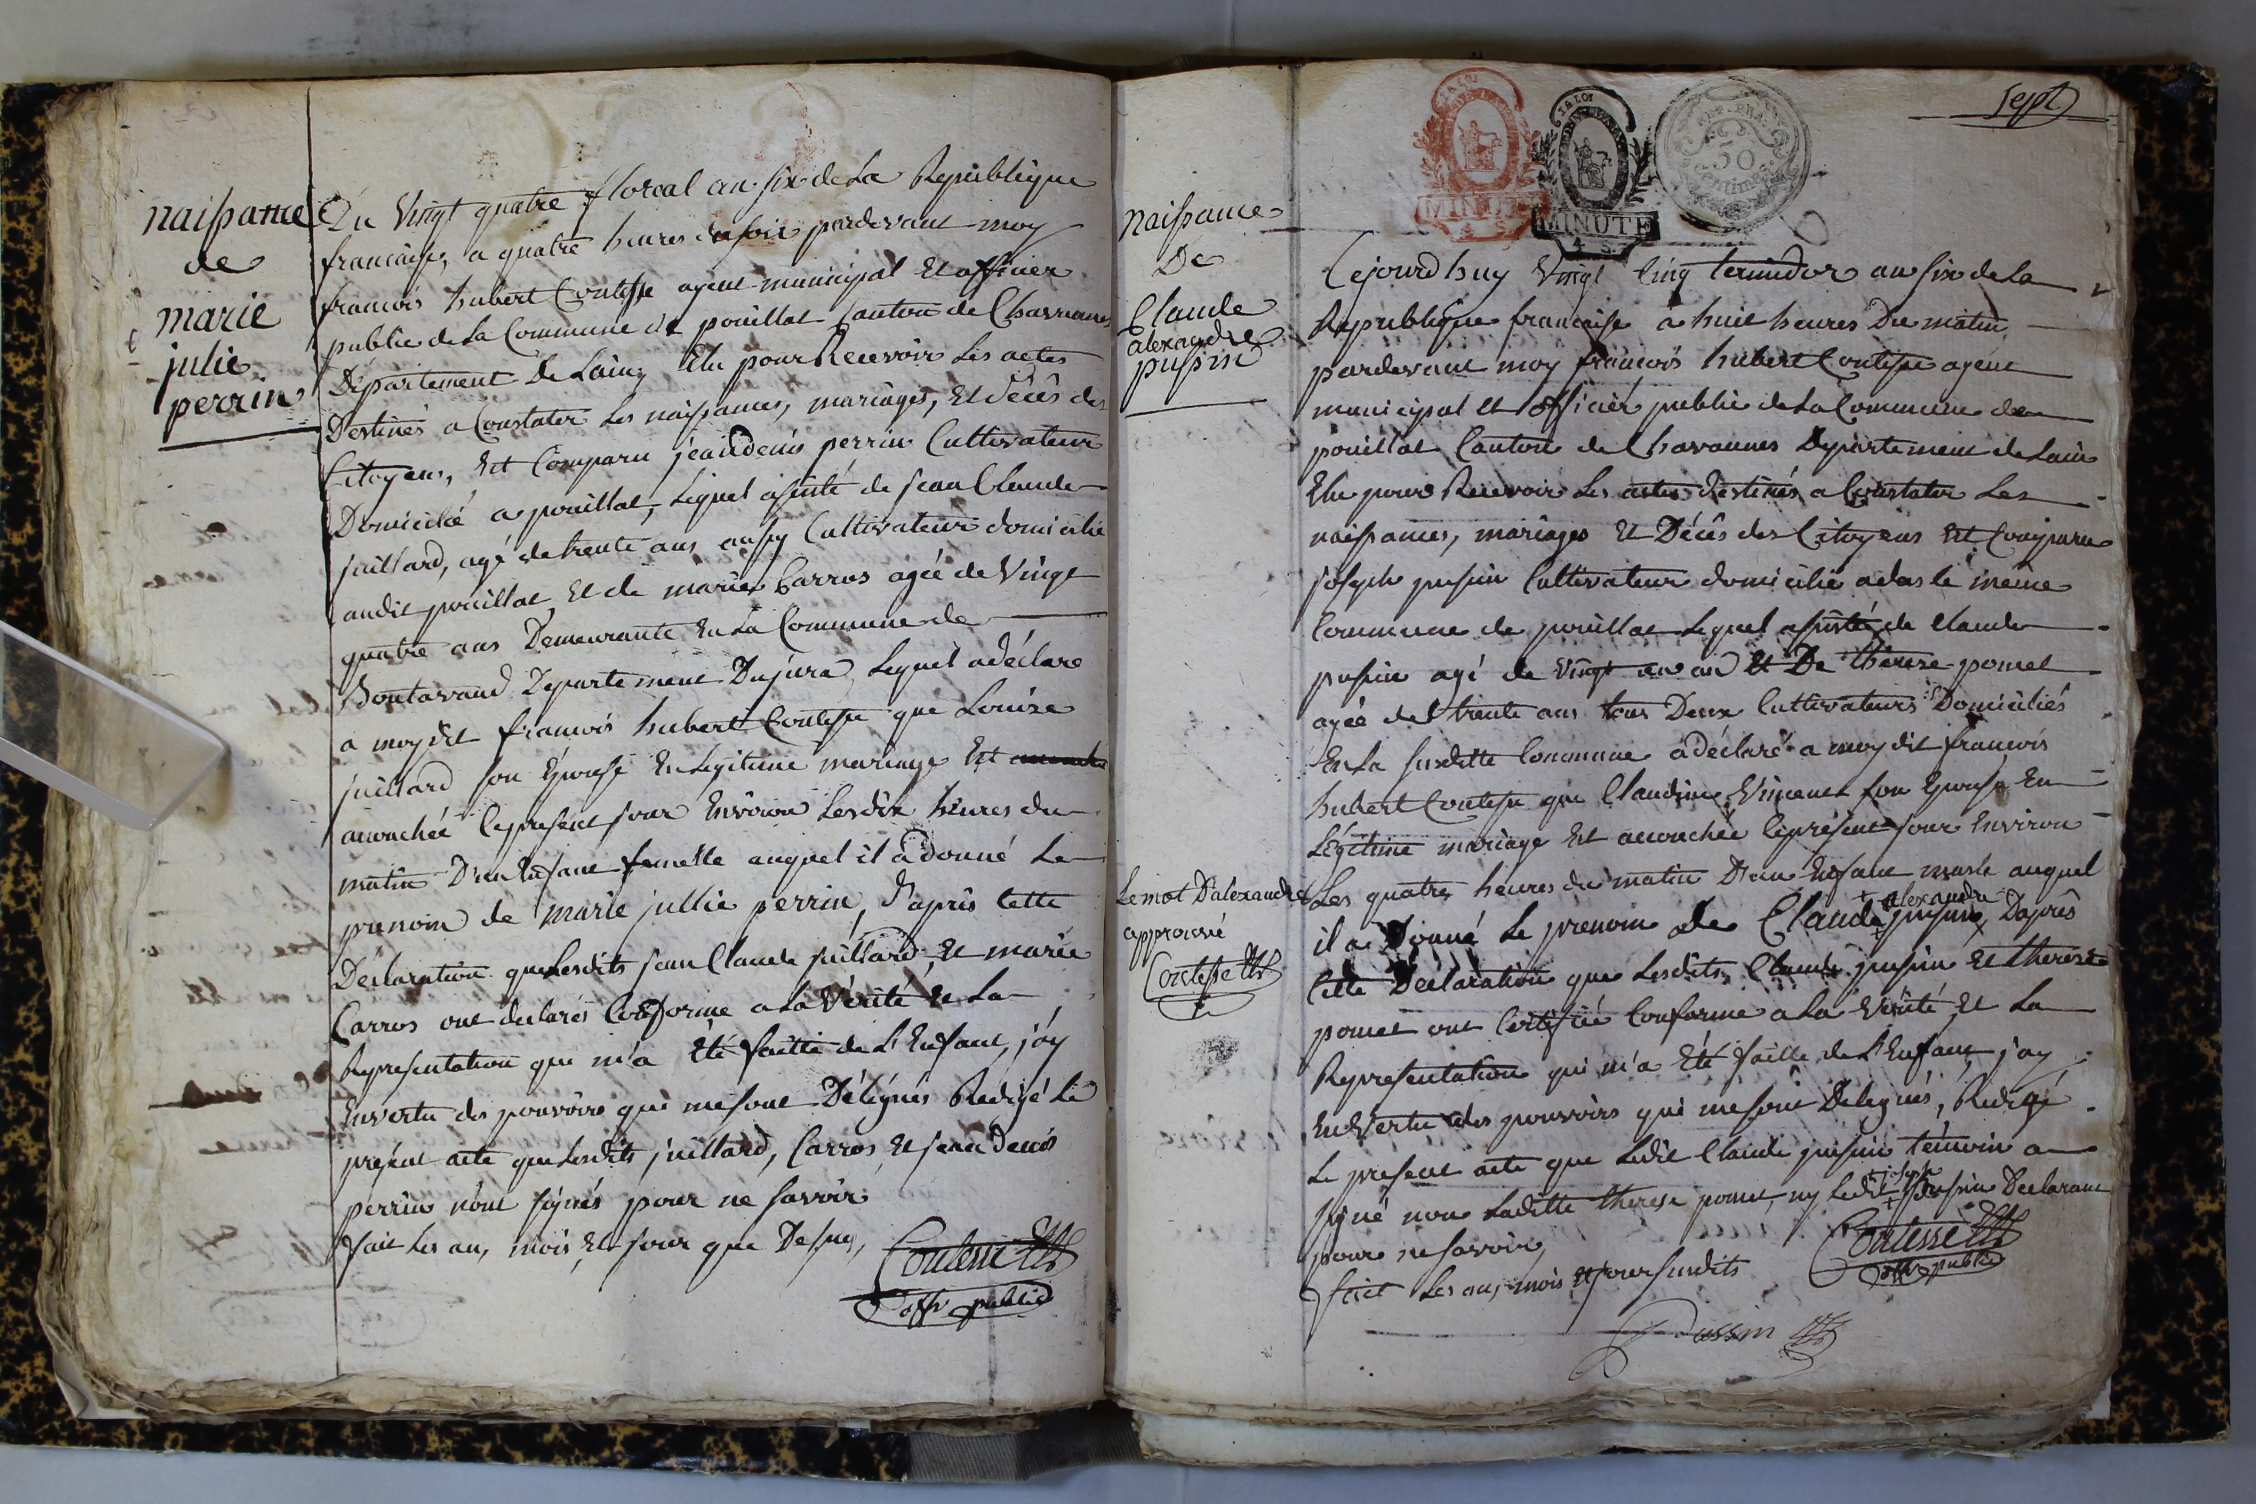 naissance
de
marie
julie
perrin
Du Vingt quatre floreal an six de La Republique
francaise, a quatre heures du soir pardevant moy
francois hubert Contesse agent municipal Et officier
public de La Commune de pouillat Canton de Chavannes
Département De Lain, Elu pour Recevoir Les actes
Destinés a Constater Les naissances, mariages, Et décês des
Citoyens, Est Comparu jean denis perrin Cultivateur
Domicilié a pouillat, Lequel assisté de jean Claude
juillard, agé de trente ans aussy Cultivateur domicilié
audit pouillat Et de marie Carros agée de Vingt
quatre ans Demeurante En La Commune de
Montavaud Departement Du jura, Lequel a déclaré
a moy dit francois hubert Contesse que Louise
juillard son Epouse En Legitime mariage Est
accouchée Ce present jour Environ Les dix heures du
matin D'un Enfant femelle auquel il a donné Le
prenom de marie jullie perrin, d'après Cette
Déclaration que Lesdits jean Claude juillard, Et marie
Carros ont declarés Conforme a La Vérité Et La
Representation qui m'a Eté faitte de L'Enfant, j'ay
En vertu des pouvoirs qui me sont Délégués Redigé Le
présent acte que Lesdits juillard, Carros, Et jean denis
perrin n'ont signés pour ne savoir
fait Les an, mois, Et jour que Dessus,
Contesse
offr public
sept
LA LOI
LA LOI
REP. FRA.
50
Centimes
MINUTE
4 S.
MINUTE
4 S.
naissance
De
Claude
alexandre
pussin
Cejourd'huy Vingt Cinq termidor an six de La
Republique francaise a huit heures Du matin
pardevant moy francois hubert Contesse agent
municipal Et officier public de La Commune de
pouillat Canton de Chavannes Departement de Lain
Elu pour Recevoir Les actes destinés a Constater Les
naissances, mariages Et Décês des Citoyens Est Comparu
joseph pussin Cultivateur domicilié a dasle meme
Commune de pouillat Lequel assisté de Claude
pussin agé de vingt un an Et De therese pomet
agée de trente ans tous Deux Cultivateurs Domiciliés
En La susditte Commune a déclaré a moy dit francois
hubert Contesse que Claudine Vincent son Epouse En
Légitime mariage Est accouchée Ce présent jour Environ
Les quatres heures du matin D'un Enfant masle auquel
alexandre
il a Donné Le prenom de Claude pussin, D'aprês
Cette Declaration que Lesdits Claude pussin Et therese
pomet ont Certifiée Conforme a La Verité, Et La
Representation qui m'a Eté faitte de L'Enfant, jay
En Vertu des pouvoirs qui me sont Delegués, Redigé
Le present acte que Ledit Claude pussin témoin a
joseph
signé non Laditte therese pomet, ny Ledit pussin Declarant
pour ne savoir,
fait Les an, mois Et jour susdits
Contesse
offr public
Pussin
Le mot D'alexandre
approuvé
Contesse